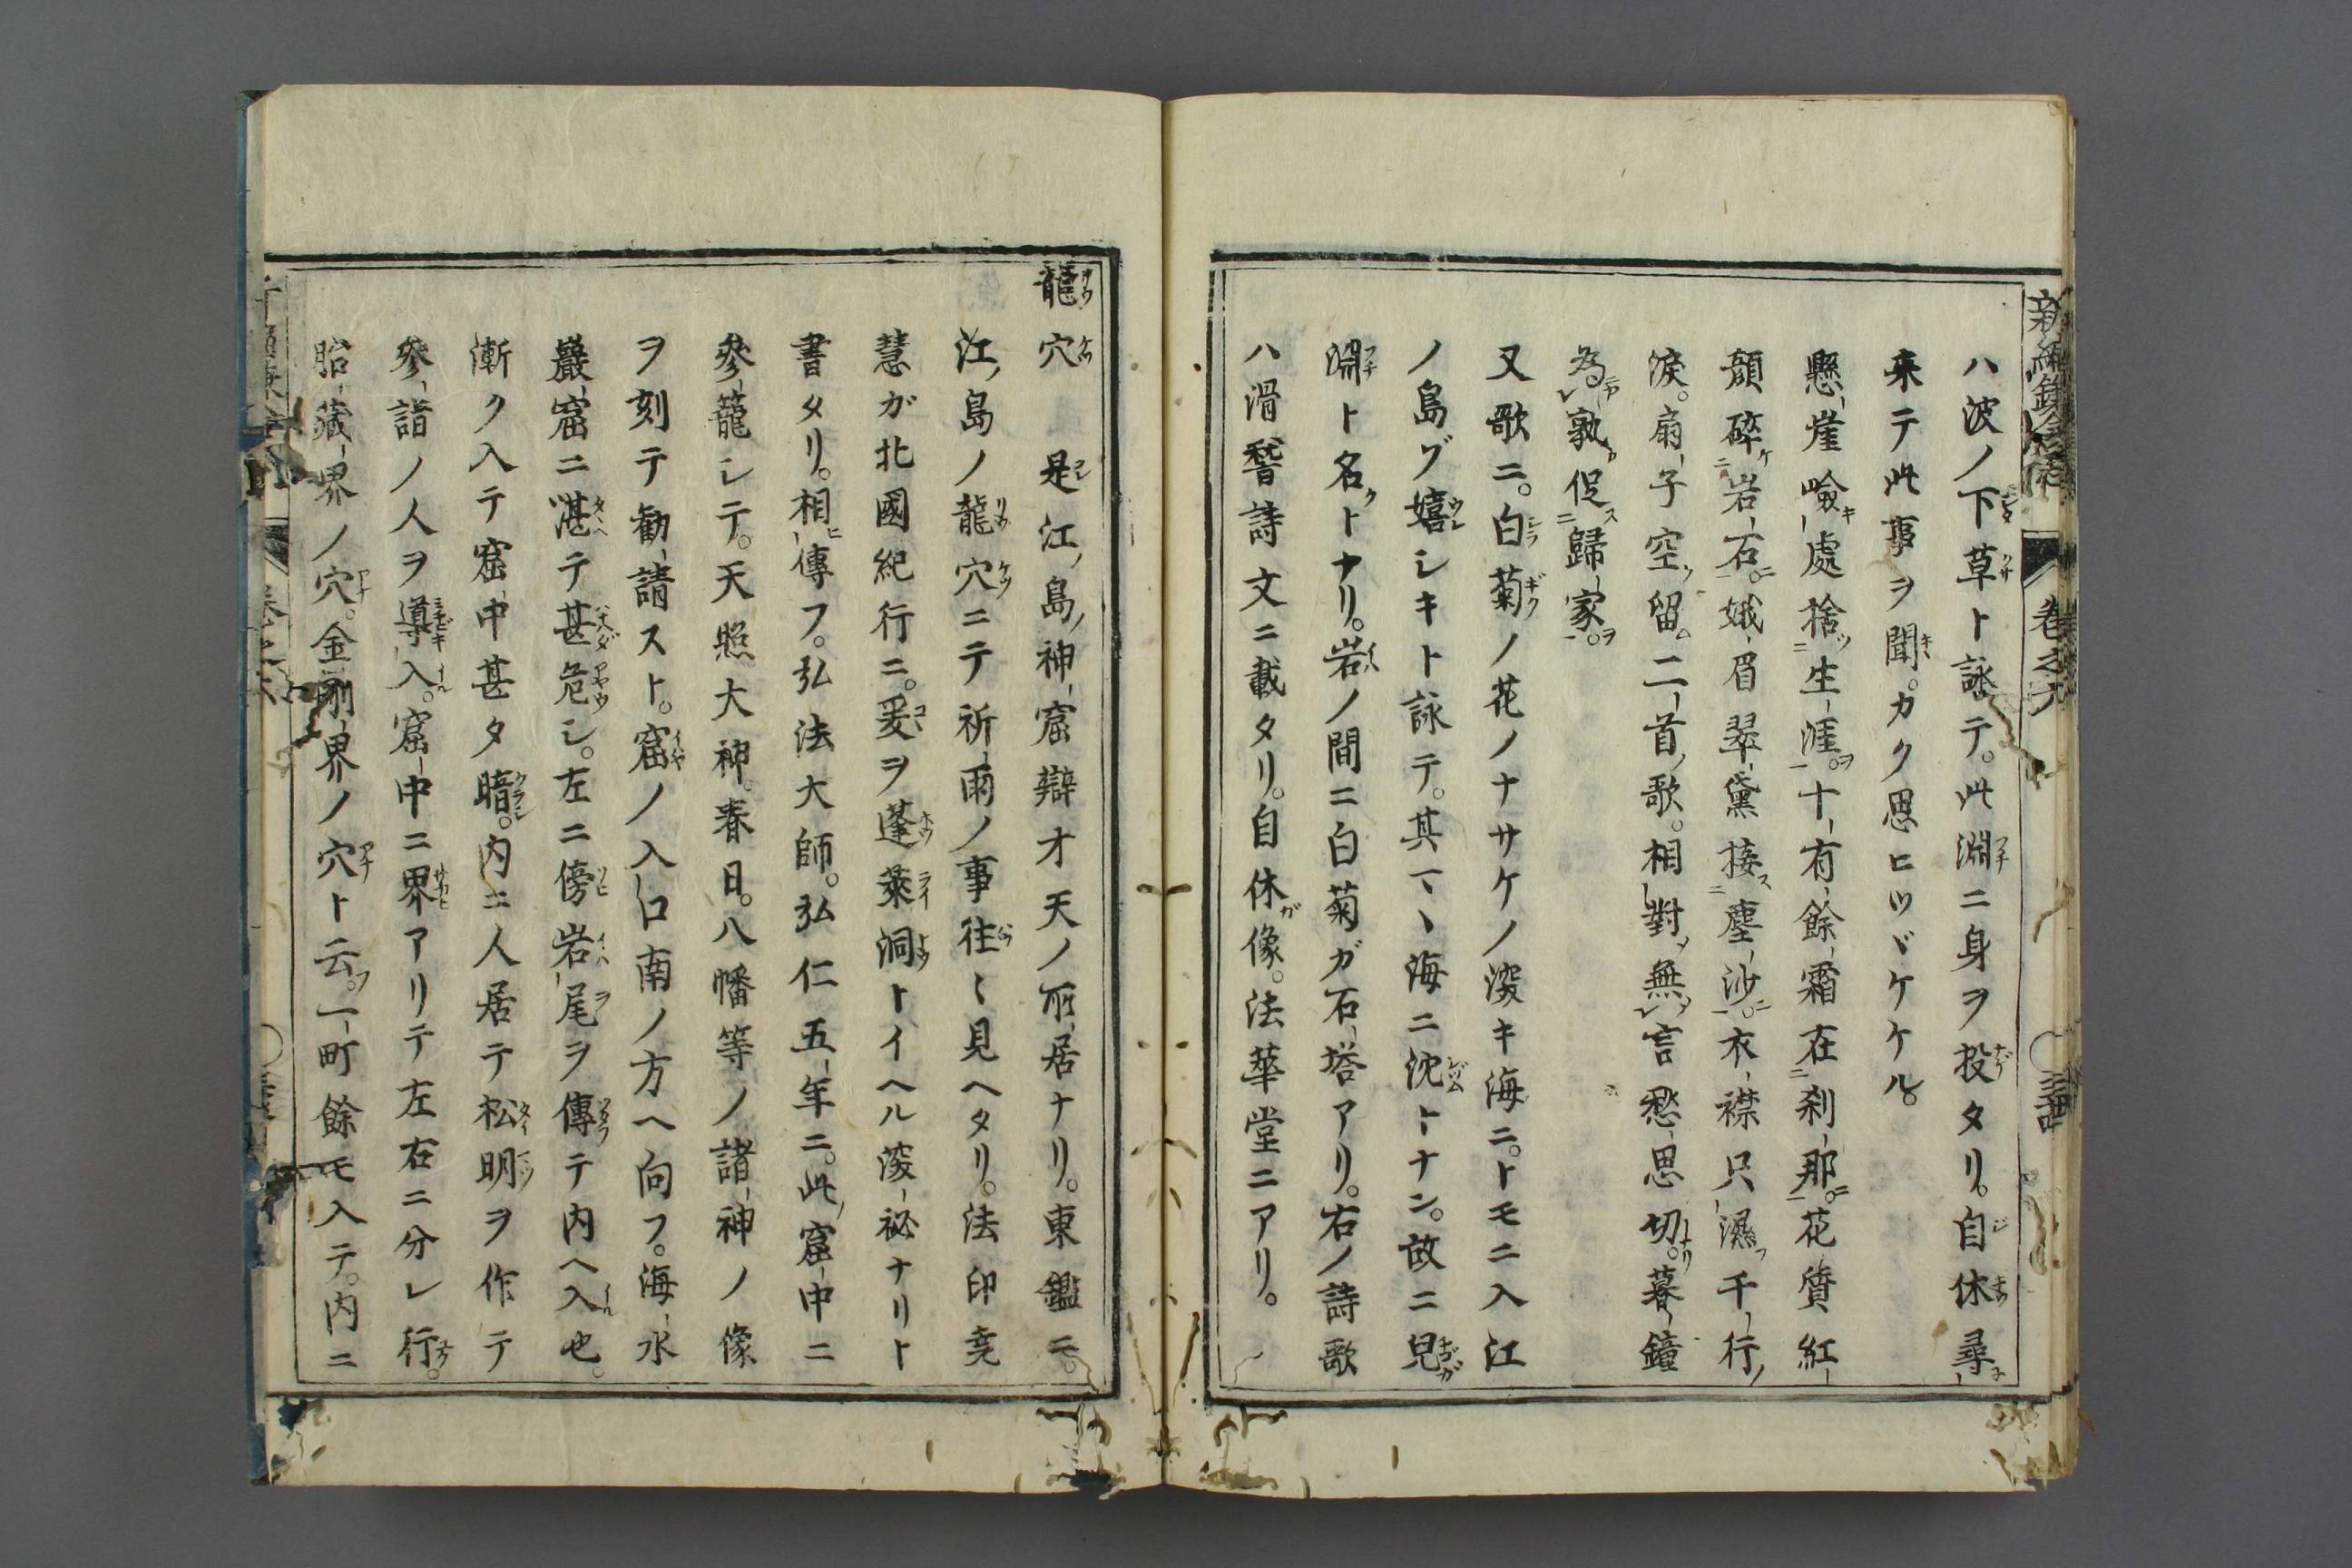 新編鎌倉志 卷之六 ○三十四
ハ波ノ下草ト詠テ。此淵ニ身ヲ投タリ。自休尋
来テ此事ヲ聞。カク思ヒツヾケケル。
懸崖嶮處捨生涯。十有餘霜在刹那。花質紅
顔碎岩石。娥眉翠黛接塵沙。衣襟只濕千行
淚。扇子空留二首歌。相對無言愁思切。暮鐘
為孰促歸家。
又歌ニ。白菊ノ花ノナサケノ深キ海ニ。トモニ入江
ノ島ゾ嬉シキト詠テ。其マヽ海ニ沈トナン。故ニ兒
淵ト名クトナリ。岩ノ間ニ白菊ガ石塔アリ。右ノ詩歌
ハ滑稽詩文ニ載タリ。自休ガ像。法華堂ニアリ。
龍穴 是江ノ島ノ神窟辯才天ノ所居ナリ。東鑑ニモ。
江ノ島ノ龍穴ニテ祈雨ノ事往々見ヘタリ。法印堯
慧ガ北國紀行ニ。爰ヲ蓬萊洞トイヘル深祕ナリト
書タリ。相傳フ。弘法大師。弘仁五年ニ。此ノ窟中ニ
參籠シテ。天照大神。春日。八幡等ノ諸神ノ像
ヲ刻テ勧請スト。窟ノ入口南ノ方ヘ向フ。海水
巖窟ニ湛テ甚危シ。左ニ傍岩尾ヲ傳テ内ヘ入也。
漸ク入テ窟中甚タ暗。内ニ人居テ松明ヲ作テ
參詣ノ人ヲ導入。窟中ニ界アリテ左右ニ分レ行。
胎藏界ノ穴。金剛界ノ穴ト云フ。一町餘モ入テ。内ニ